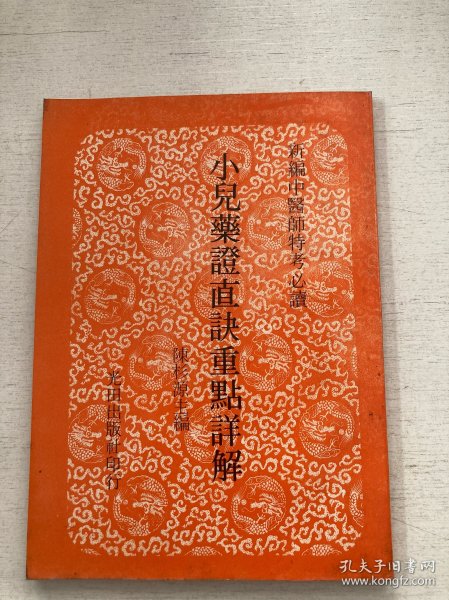 新編中醫師特考必讀
小兒藥證直訣重點詳解
陳杉源主編
光田出版社印行
孔夫子旧书网
www.kongfz.com